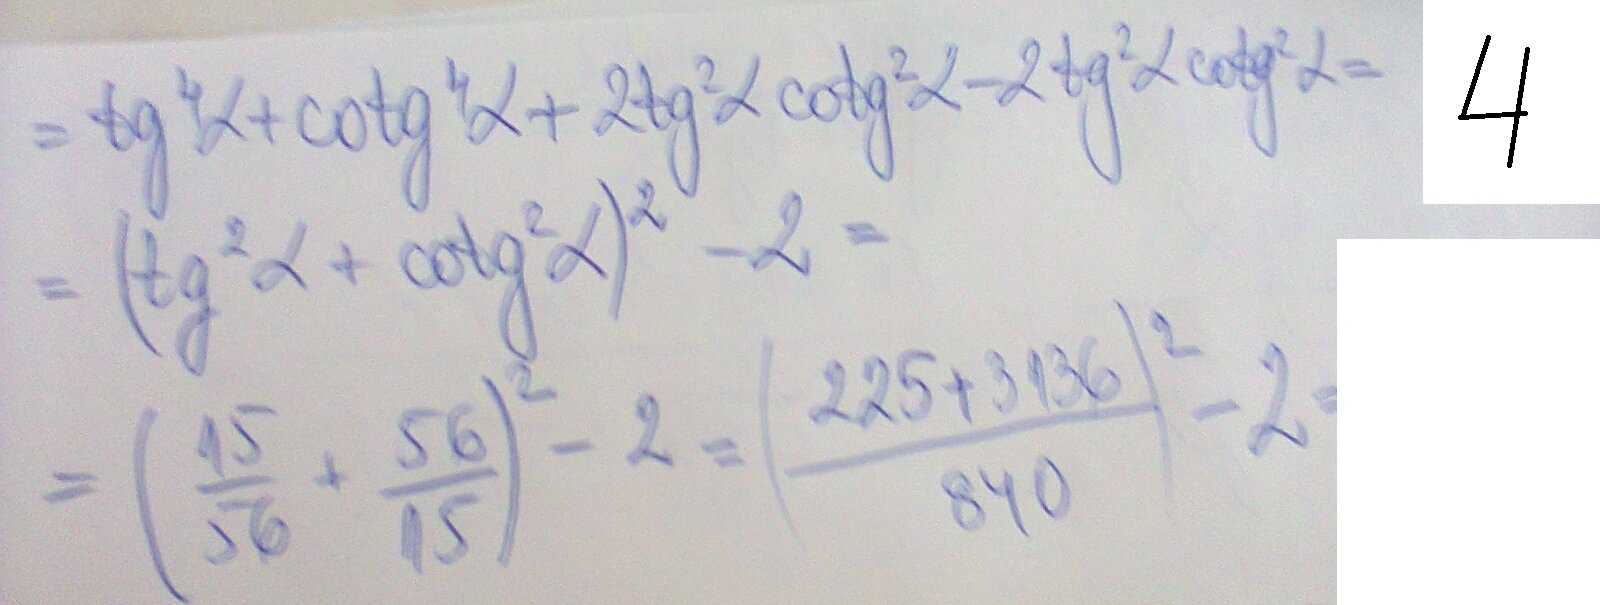 = tg⁴α + cotg⁴α + 2tg²α cotg²α - 2tg²α cotg²α =
4
= (tg²α + cotg²α)² - 2 =
= (15/56 + 56/15)² - 2 = ((225+3136)/840)² - 2 =